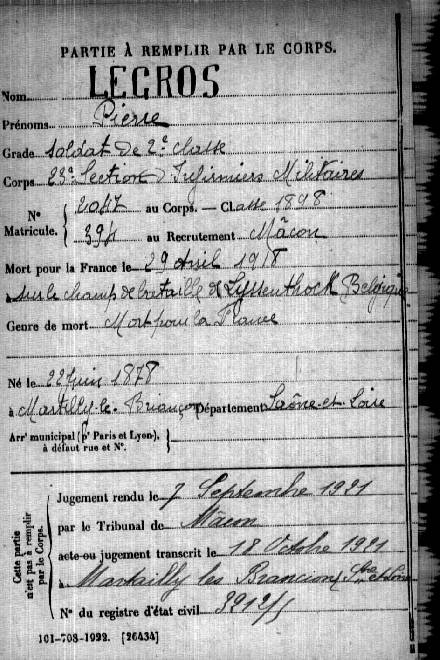 PARTIE À REMPLIR PAR LE CORPS.
Nom LEGROS
Prénoms Pierre
Grade Soldat de 2e classe
Corps 23e Section d'Infirmiers Militaires
No Matricule. { 2047 au Corps. — Classe 1898
394 au Recrutement Mâcon
Mort pour la France le 29 Avril 1918
à sur le champ de bataille de Lyssenthock Belgique
Genre de mort Mort pour la France
Né le 22 Juin 1878
à Martilly-le-Briançon Département Saône-et-Loire
Arrt municipal (pr Paris et Lyon), à défaut rue et No. }
Cette partie n'est pas à remplir par le Corps.
Jugement rendu le 7 Septembre 1921
par le Tribunal de Mâcon
acte ou jugement transcrit le 18 Octobre 1921
à Martailly les Brancion (Sne et Loire
No du registre d'état civil 3912/
101-708-1922. [26434]